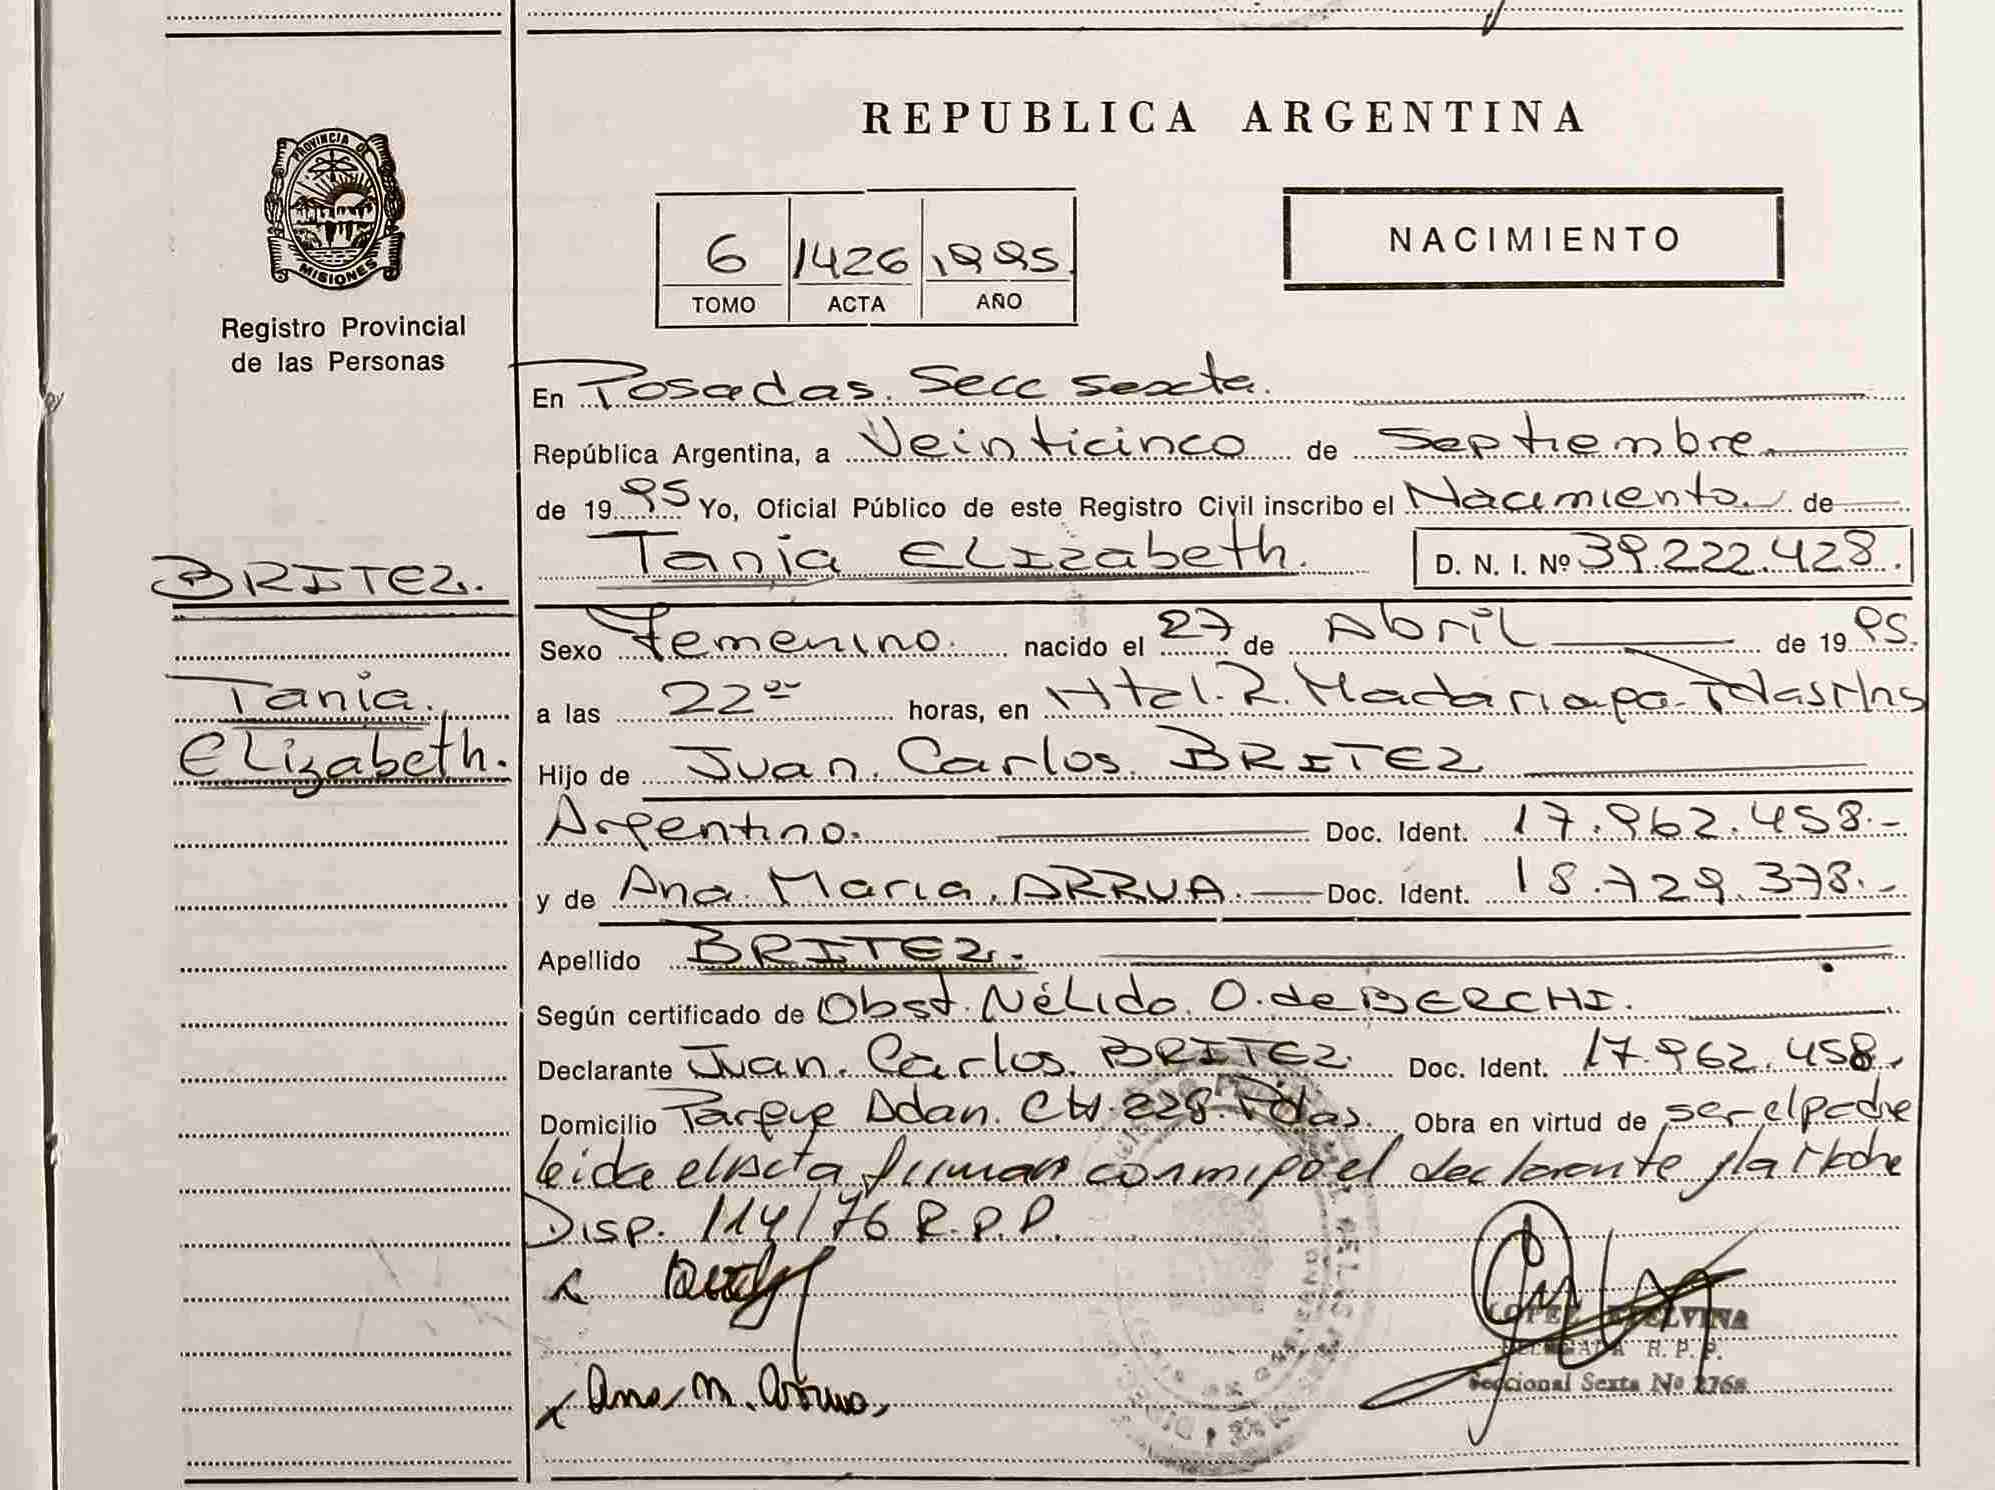 REPUBLICA ARGENTINA
PROVINCIA DE
MISIONES
Registro Provincial
de las Personas
6 1426 1995
TOMO ACTA AÑO
NACIMIENTO
En Posadas. Secc sexta.
República Argentina, a Veinticinco de Septiembre
de 1995 Yo, Oficial Público de este Registro Civil inscribo el Nacimiento de
BRITEZ.
Tania ELIzabeth. D. N. I. Nº 39.222.428.
Sexo Femenino. nacido el 27 de Abril de 1995.
Tania.
a las 22 horas, en Htal. R. Madariaga. Pdas Mns
ELizabeth.
Hijo de Juan. Carlos. BRITEZ
Argentino. Doc. Ident. 17.962.458.-
y de Ana. Maria. ARRUA. Doc. Ident. 18.729.378.-
Apellido BRITEZ.
Según certificado de Obst. NéLida. O. de BERCHI.
Declarante Juan. Carlos. BRITEZ. Doc. Ident. 17.962.458.
Domicilio Parque Adan. 228. Pdas. Obra en virtud de ser el padre
leida el acta firman conmigo el declarante y la madre
Disp. 114/76 R.P.P.
LOPEZ ETELVINA
DELEGADA R. P. P.
Seccional Sexta Nº 2768
x Ana M. Arrua